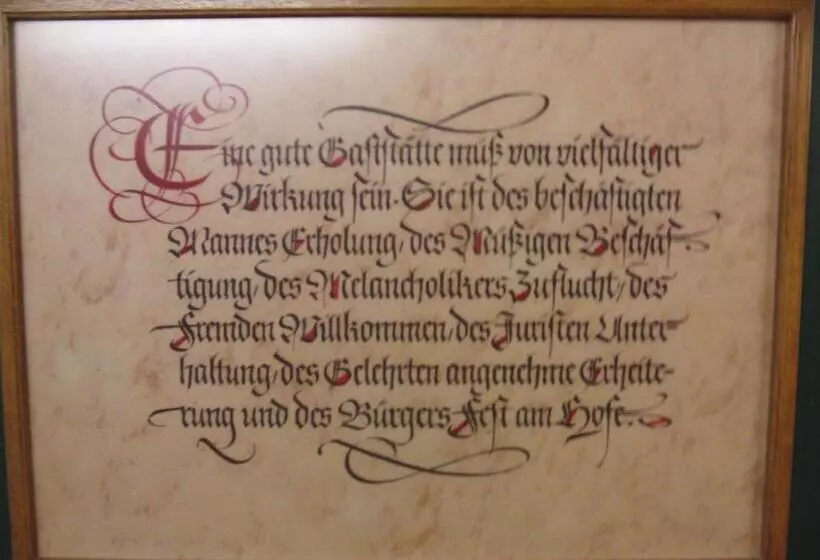 Eine gute Gaststätte muß von vielfältiger
Wirkung sein. Sie ist des beschäftigten
Mannes Erholung, des Müßigen Beschäf-
tigung, des Melancholikers Zuflucht, des
Fremden Willkommen, des Juristen Unter-
haltung, des Gelehrten angenehme Erheite-
rung und des Bürgers Fest am Hofe.